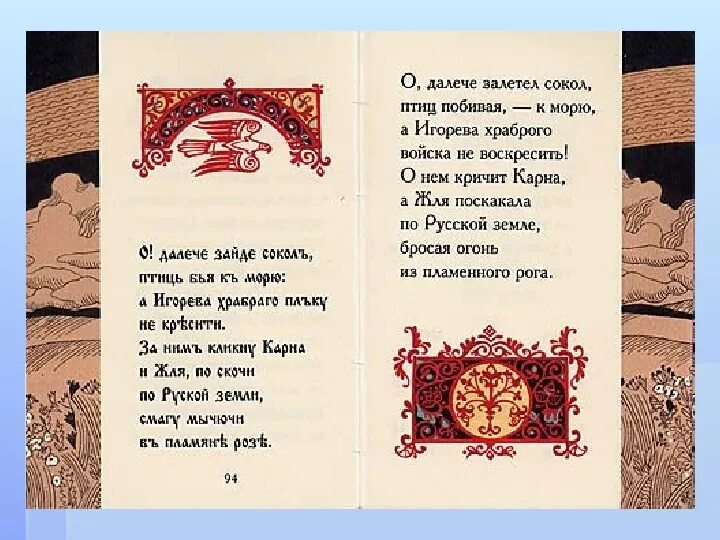 О! далече зайде соколъ,
птиць бья къ морю:
а Игорева храбраго плъку
не крѣсити.
За нимъ кликну Карна
и Жля, по скочи
по Руской земли,
смагу мычючи
въ пламянѣ розѣ.
94
О, далече залетел сокол,
птиц побивая, — к морю,
а Игорева храброго
войска не воскресить!
О нем кричит Карна,
а Жля поскакала
по Русской земле,
бросая огонь
из пламенного рога.